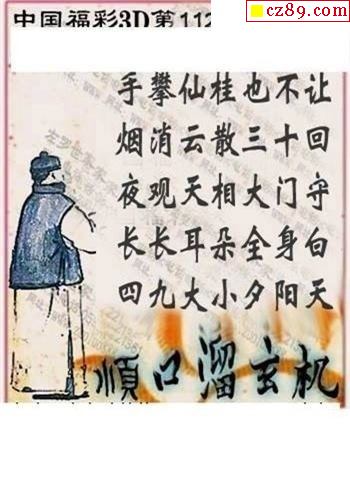 cz89.com
中国福彩3D第112
手攀仙桂也不让
烟消云散三十回
夜观天相大门守
长长耳朵全身白
四九大小夕阳天
順口溜玄机